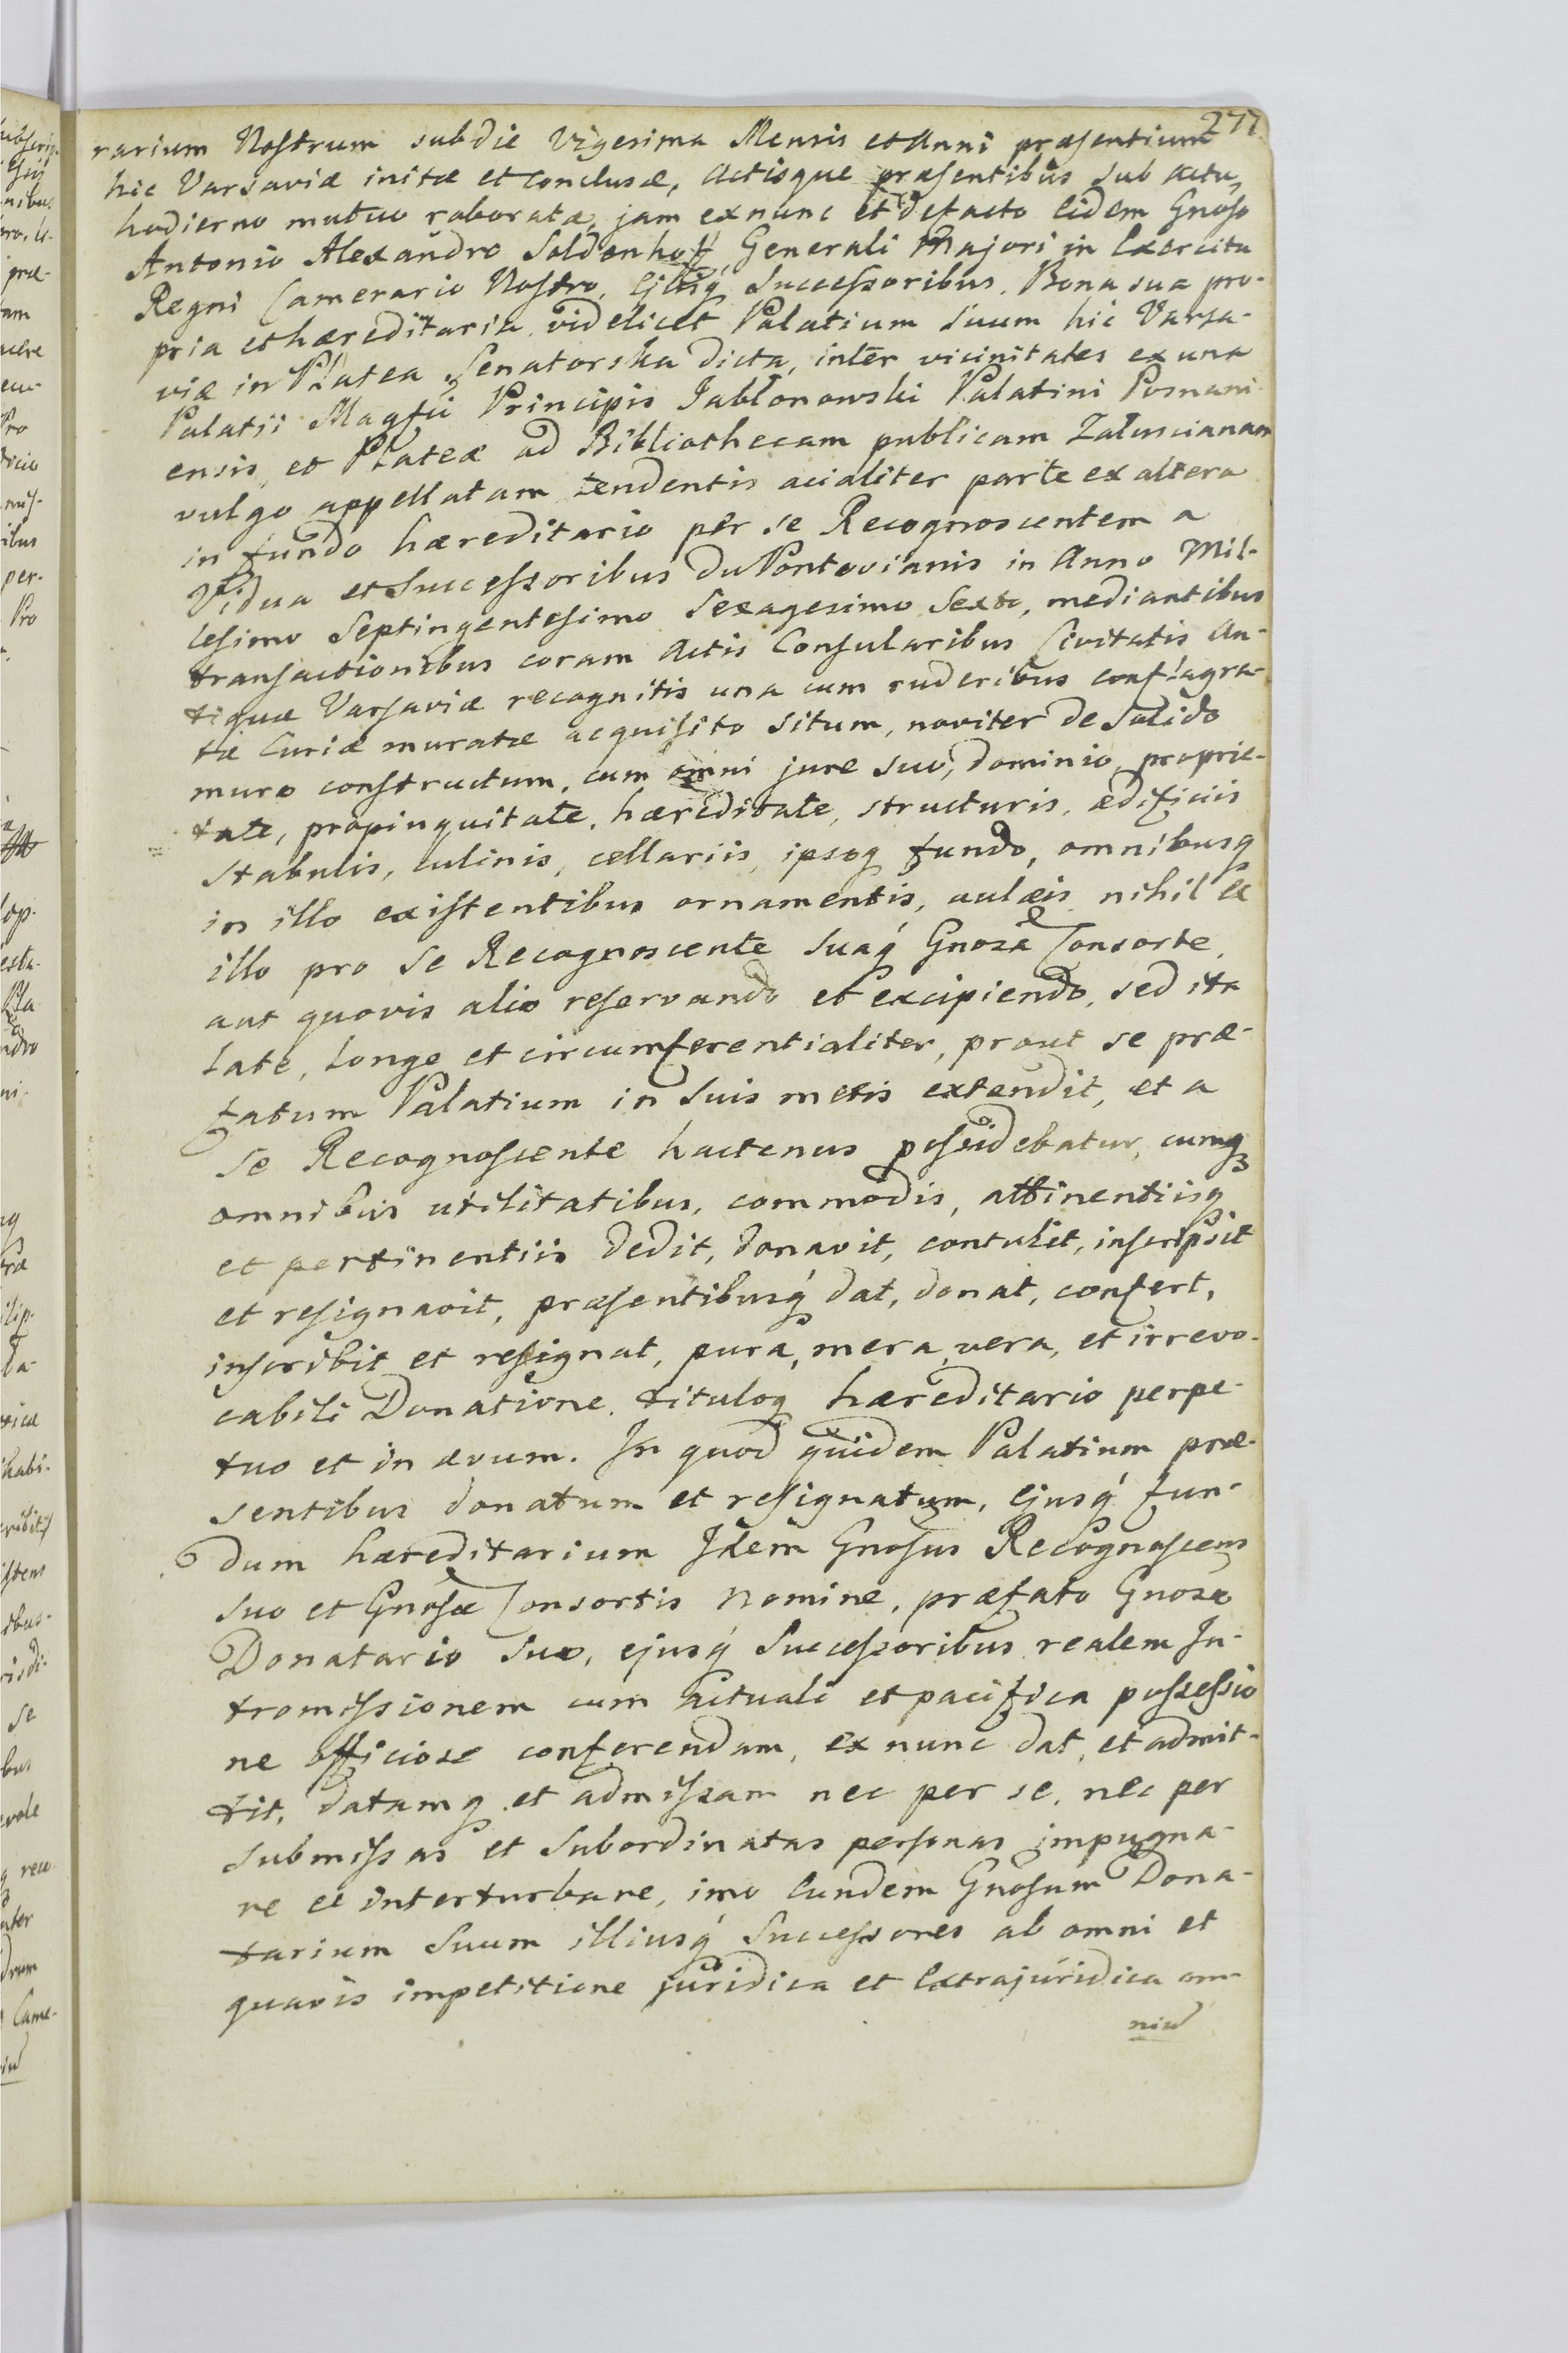 277.
rarium Nostrum sub die Vigesima Mensis et Anni præsentium
hic Varsaviæ initæ et conclusæ, Actisque præsentibus sub actu,
hodierno mutuo roboratæ, jam ex nunc et defacto Eidem Gnoso
Antonio Alexandro Soldenhoff, Generali Majori in Exercitu
Regni Camerario Nostro, Ejusq́ Successoribus, Bona sua pro-
pria et hæreditaria, videlicet Palatium Suum hic Varsa-
viæ in Platea Senatorska dicta, inter vicinitates ex una
Palatii Magfci Principis Jabłonowski Palatini Posnani-
ensis, et Plateæ ad Bibliothecam publicam Załuscianam
vulgo appellatam tendentis acialiter parte ex altera
in fundo hæreditario per se Recognoscentem a
Vidua et Successoribus DuPontovianis in Anno Mil-
lesimo Septingentesimo Sexagesimo Sexto, mediantibus
transactionibus coram Actis Consularibus Civitatis An-
tiquæ Varsaviæ recognitis una cum ruderibus conflagra-
tæ Curiæ muratæ acquisito situm, noviter de Solido
muro constructum, cum omni jure suo, dominio, proprie-
tate, propinquitate, hæreditate, structuris, ædificiis
stabulis, culinis, cellariis, ipsoq fundo, omnibusq
in illo existentibus ornamentis, aulæis, nihil ex
illo pro se Recognoscente Suaq́ Gnosa Consorte,
aut quovis alio reservando et excipiendo, sed ita
late, longe et circumferentialiter, prout se præ-
fatum Palatium in Suis metis extendit, et a
Se Recognoscente hactenus possidebatur, cumq
omnibus utilitatibus, commodis, attinentiisq
et pertinentiis dedit, donavit, contulit, inscripsit
et resignavit, præsentibusq́ dat, donat, confert,
inscribit et resignat, pura, mera, vera, et irrevo-
cabili Donatione, tituloq hæreditario perpe-
tuo et in ævum. In quod quidem Palatium præ-
sentibus donatum et resignatum, Ejusq́ fun-
dum hæreditarium Idem Gnosus Recognoscens
suo et Gnosæ Consortis Nomine, præfato Gnoso
Donatario Suo, ejusq́ Successoribus realem In-
tromissionem cum Actuali et pacifica possessio
ne officiose conferendam, ex nunc dat, et admit-
tit, datamq et admissam nec per se, nec per
Submissas et Subordinatas personas impugna-
re et interturbare, imo Eundem Gnosum Dona-
tarium Suum illiusq́ Successores ab omni et
quavis impetitione juridica et Extrajuridica om-
niu